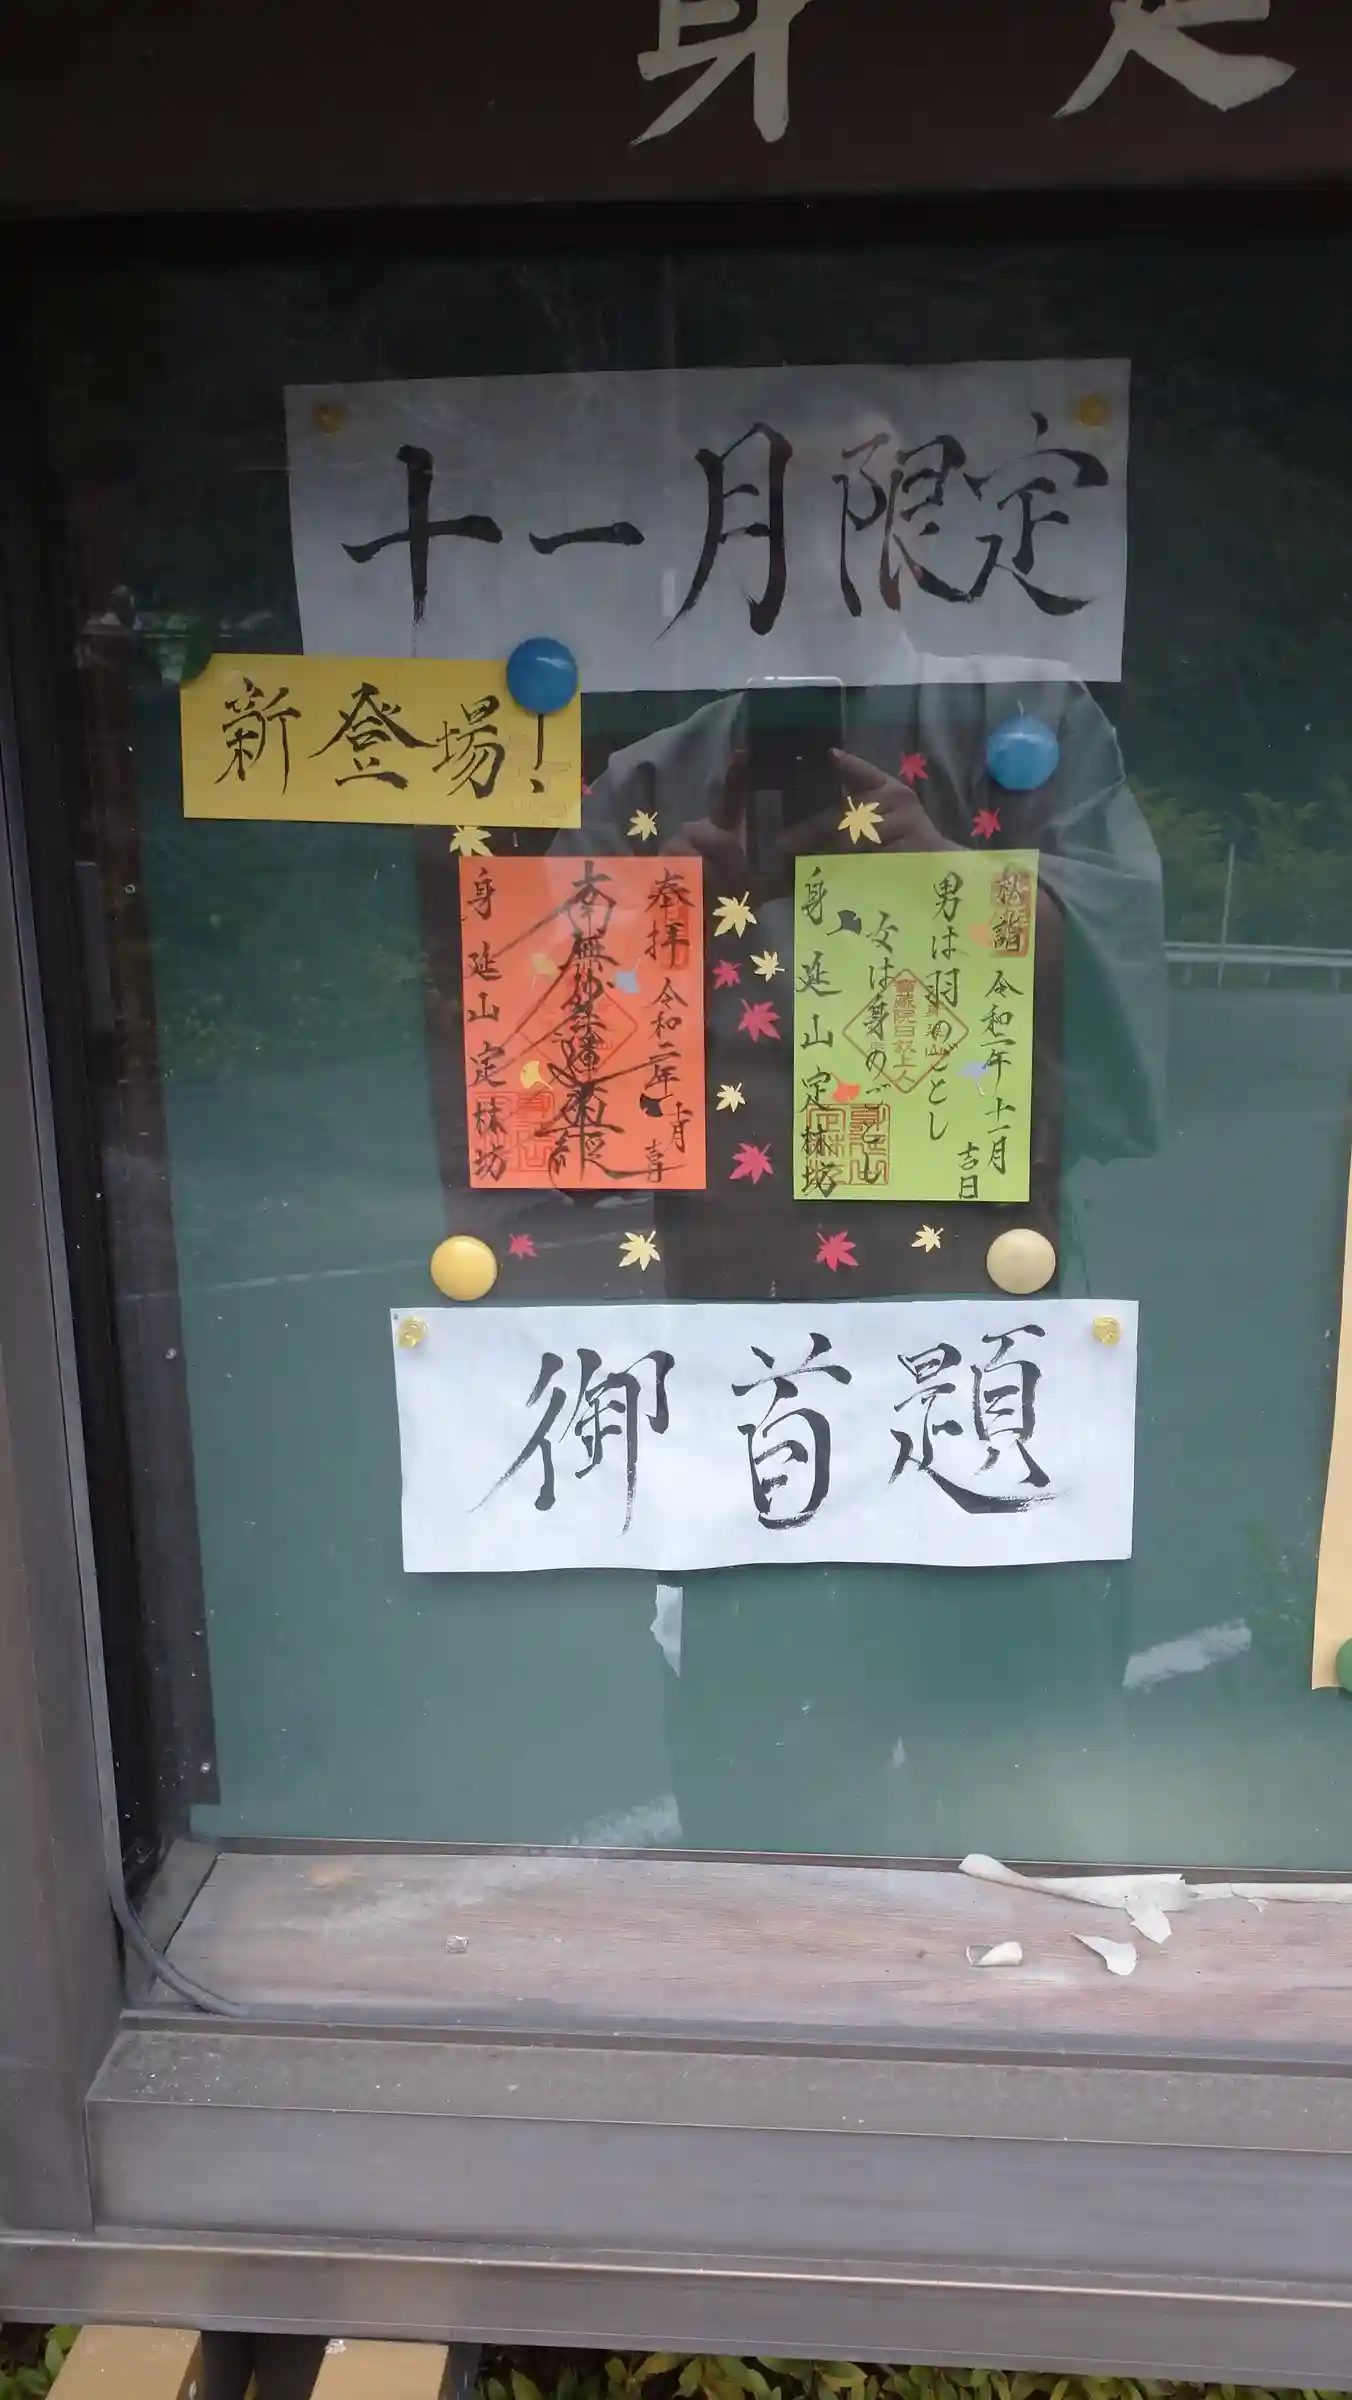 身延
十一月限定
新登場!
奉拝 令和二年十一月吉日
南無妙法蓮華経
身延山定林坊
秋詣 令和二年十一月吉日
男は羽のごとし
女は身のごとし
身延山定林坊
御首題